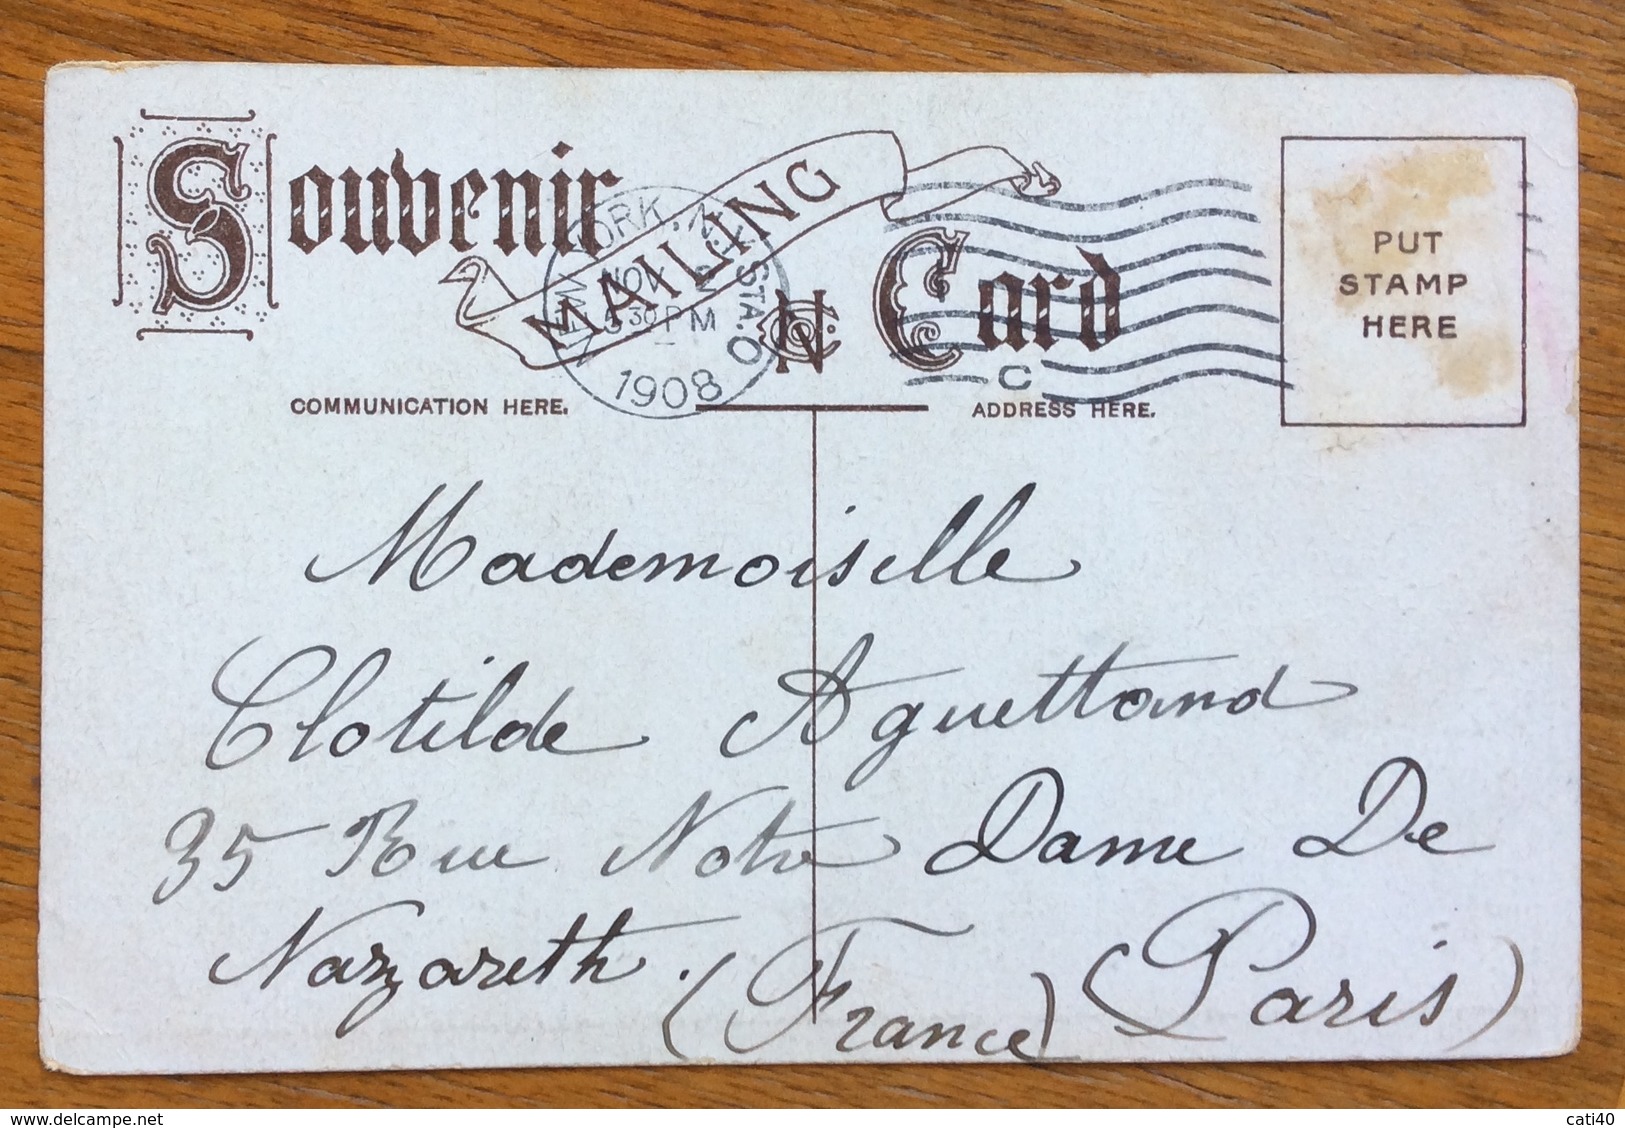 Souvenir
MAILING
Card
NEW YORK, N.Y. STA. O
NOV
5 30 PM
1908
C
PUT
STAMP
HERE
COMMUNICATION HERE.
ADDRESS HERE.
Mademoiselle
Clotilde Aguettand
35 Rue Notre Dame De
Nazareth. (France) (Paris)
cati40